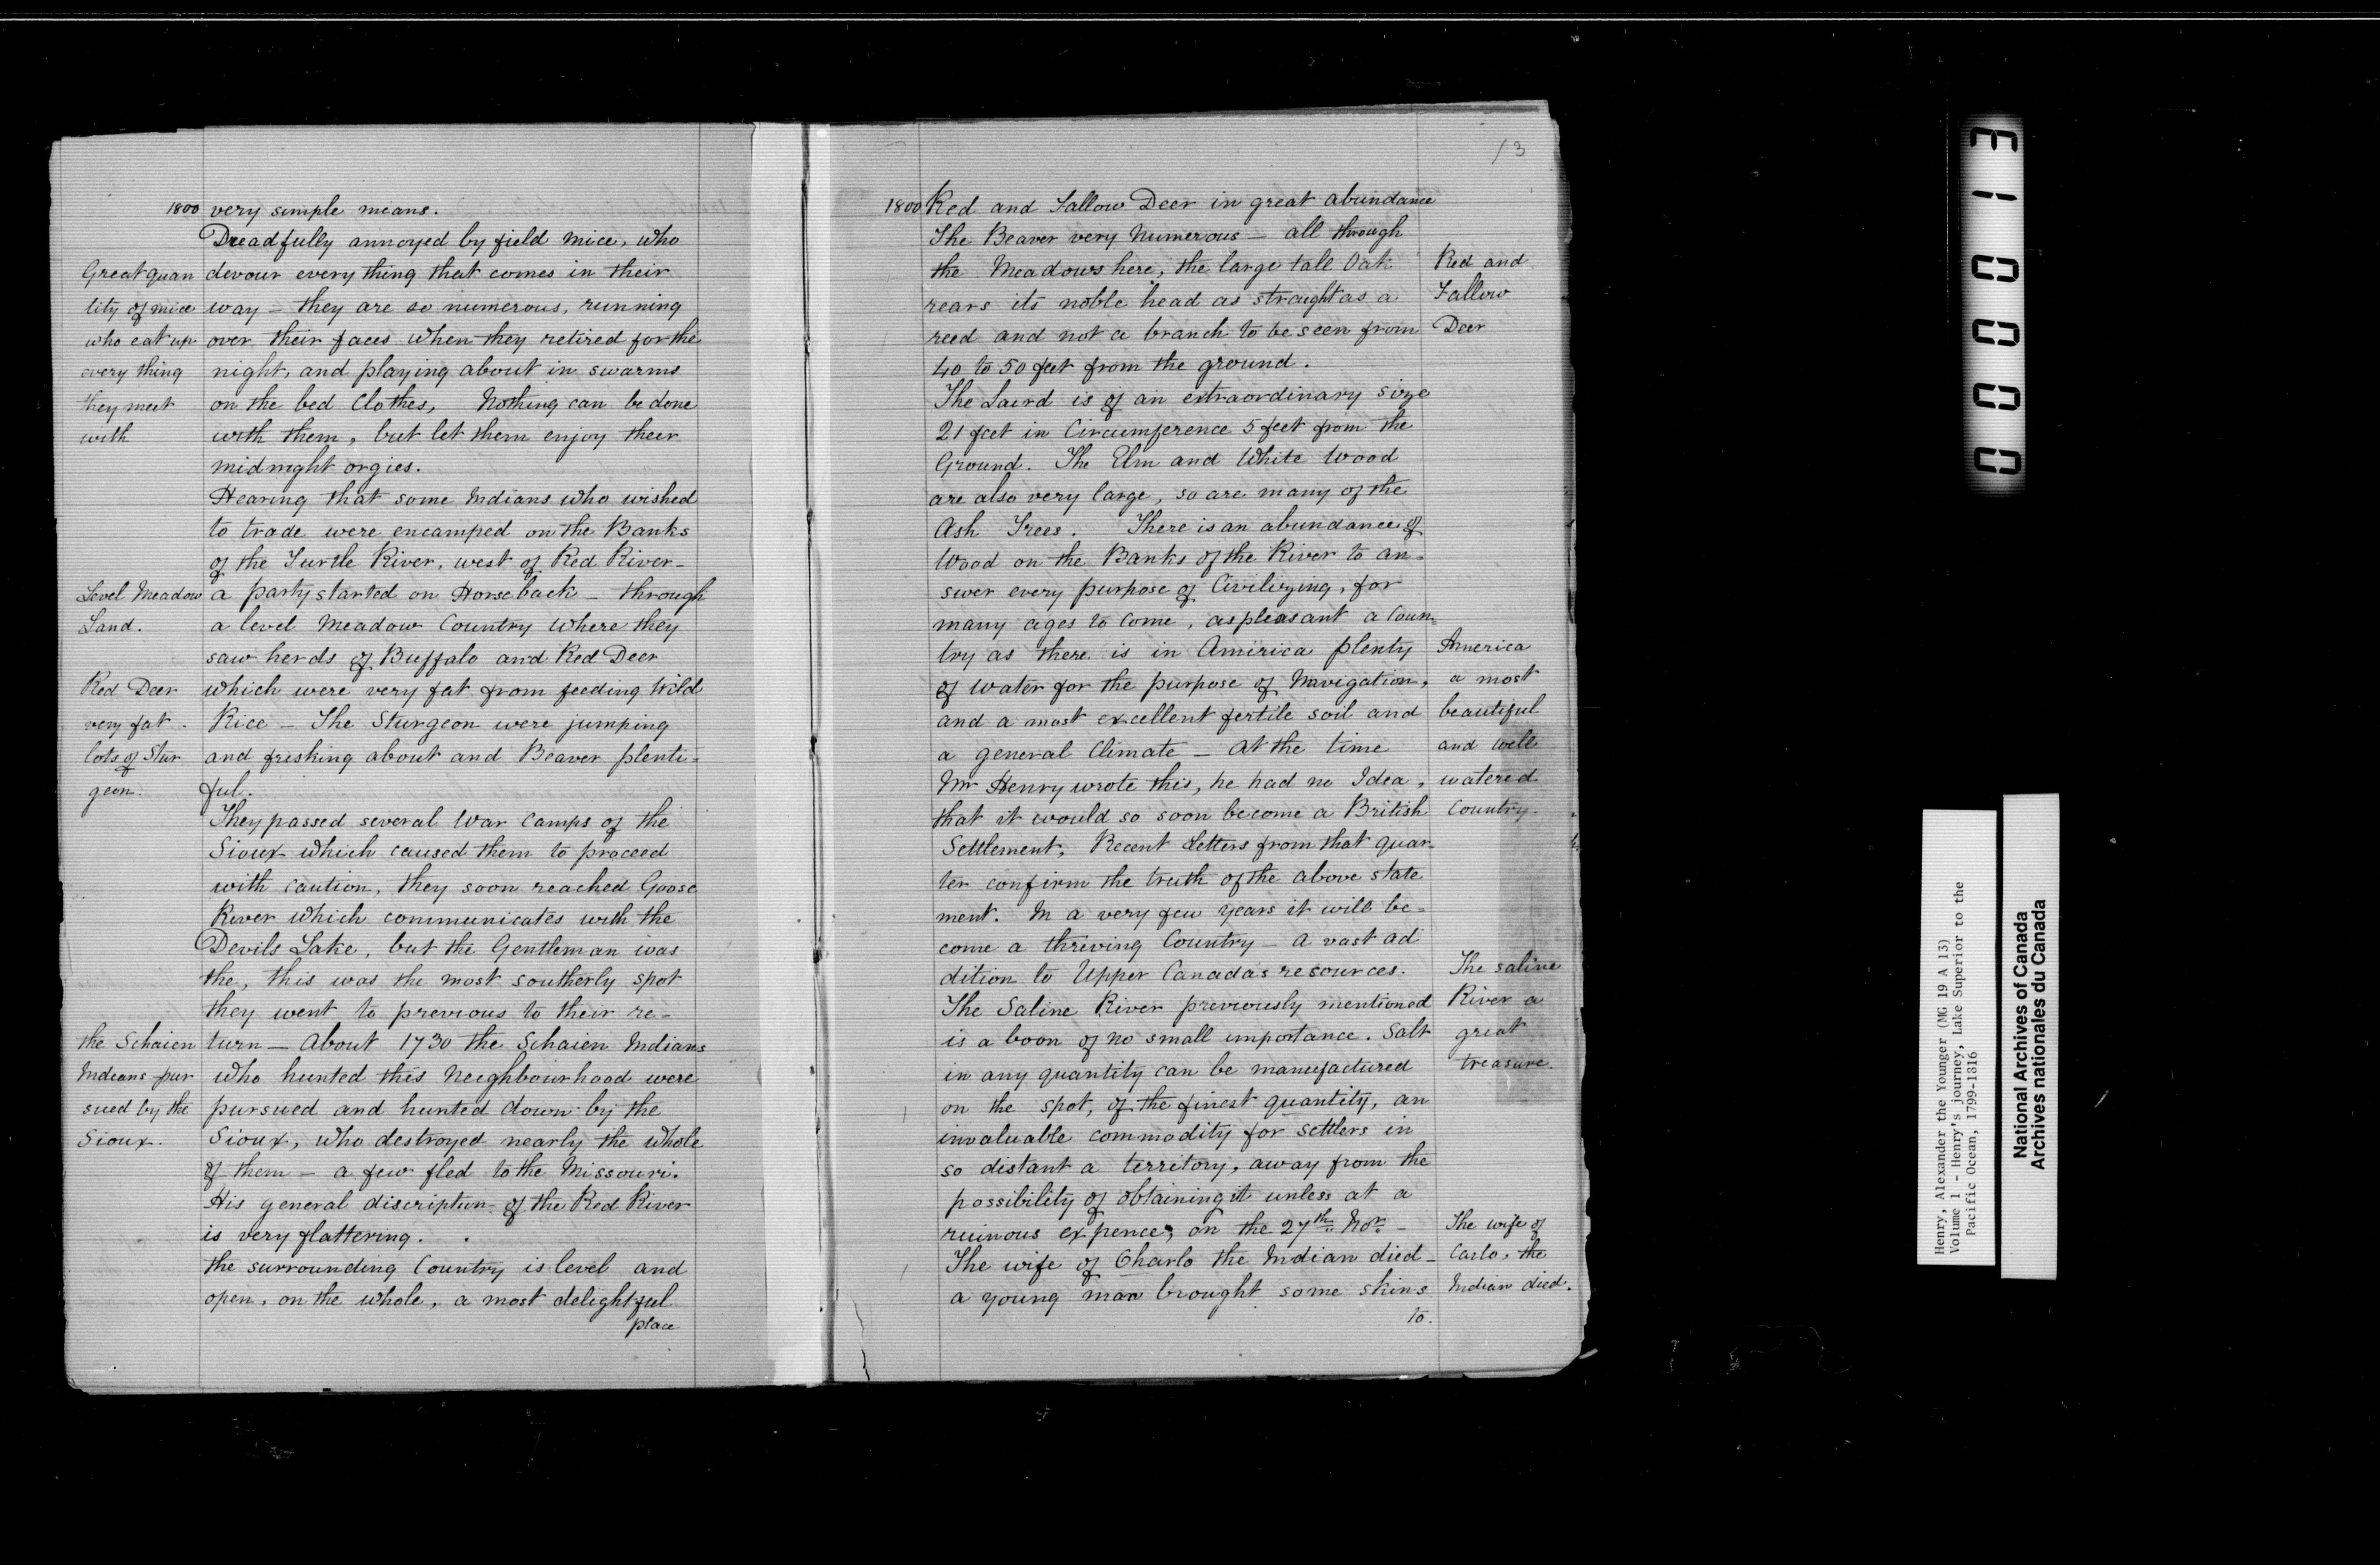 1800 very simple means.
Dreadfully annoyed by field mice, who
devour every thing that comes in their
way – they are so numerous, running
over their faces when they retired for the
night, and playing about in swarms
on the bed Clothes, Nothing can be done
with them, but let them enjoy their
midnight orgies.
Hearing that some Indians who wished
to trade were encamped on the Banks
of the Turtle River, west of Red River –
a party started on Horseback – through
a level Meadow Country where they
saw herds of Buffalo and Red Deer
which were very fat from feeding Wild
Rice – The Sturgeon were jumping
and frisking about and Beaver plenti=
ful.
They passed several War Camps of the
Sioux which caused them to proceed
with caution, they soon reached Goose
River which communicates with the
Devils Lake, but the Gentleman was
the, this was the most southerly spot
they went to previous to their re-
turn – About 1730 the Schaien Indians
who hunted this Neighbourhood were
pursued and hunted down by the
Sioux, who destroyed nearly the whole
of them – a few fled to the Missouri.
His general discription of the Red River
is very flattering.
the surrounding Country is level and
open, on the whole, a most delightful
place
Great quan
tity of mice
who eat up
every thing
they meet
with
Level Meadow
Land.
Red Deer
very fat
lots of Stur
geon.
the Schaien
Indians pur
sued by the
Sioux.
13
1800 Red and Fallow Deer in great abundance
The Beaver very Numerous – all through
the Meadows here, the large tall Oak
rears its noble head as straight as a
reed and not a branch to be seen from
40 to 50 feet from the ground.
The Laird is of an extraordinary size
21 feet in Circumference 5 feet from the
Ground. The Elm and White Wood
are also very large, so are many of the
Ash Trees. There is an abundance of
Wood on the Banks of the River to an-
swer every purpose of Civilizing, for
many ages to come, as pleasant a Coun=
try as there is in America plenty
of Water for the purpose of Navigation,
and a most excellent fertile soil and
a general Climate – At the time
Mr Henry wrote this, he had no Idea,
that it would so soon become a British
Settlement, Recent Letters from that quar-
ter confirm the truth of the above state
ment. In a very few years it will be=
come a thriving Country – a vast ad
dition to Upper Canadas resources.
The Saline River previously mentioned
is a boon of no small importance. Salt
in any quantity can be manufactured
on the spot, of the finest quantity, an
invaluable commodity for settlers in
so distant a territory, away from the
possibility of obtaining it unless at a
ruinous expence; on the 27th Nov. –
The wife of Charlo the Indian died –
a young man brought some skins
to.
Red and
Fallow
Deer
America
a most
beautiful
and well
watered
Country.
The saline
River a
great
treasure.
The wife of
Carlo, the
Indian died.
000013
Henry, Alexander the Younger (MG 19 A 13)
Volume 1 - Henry's journey, Lake Superior to the
Pacific Ocean, 1799-1816
National Archives of Canada
Archives nationales du Canada